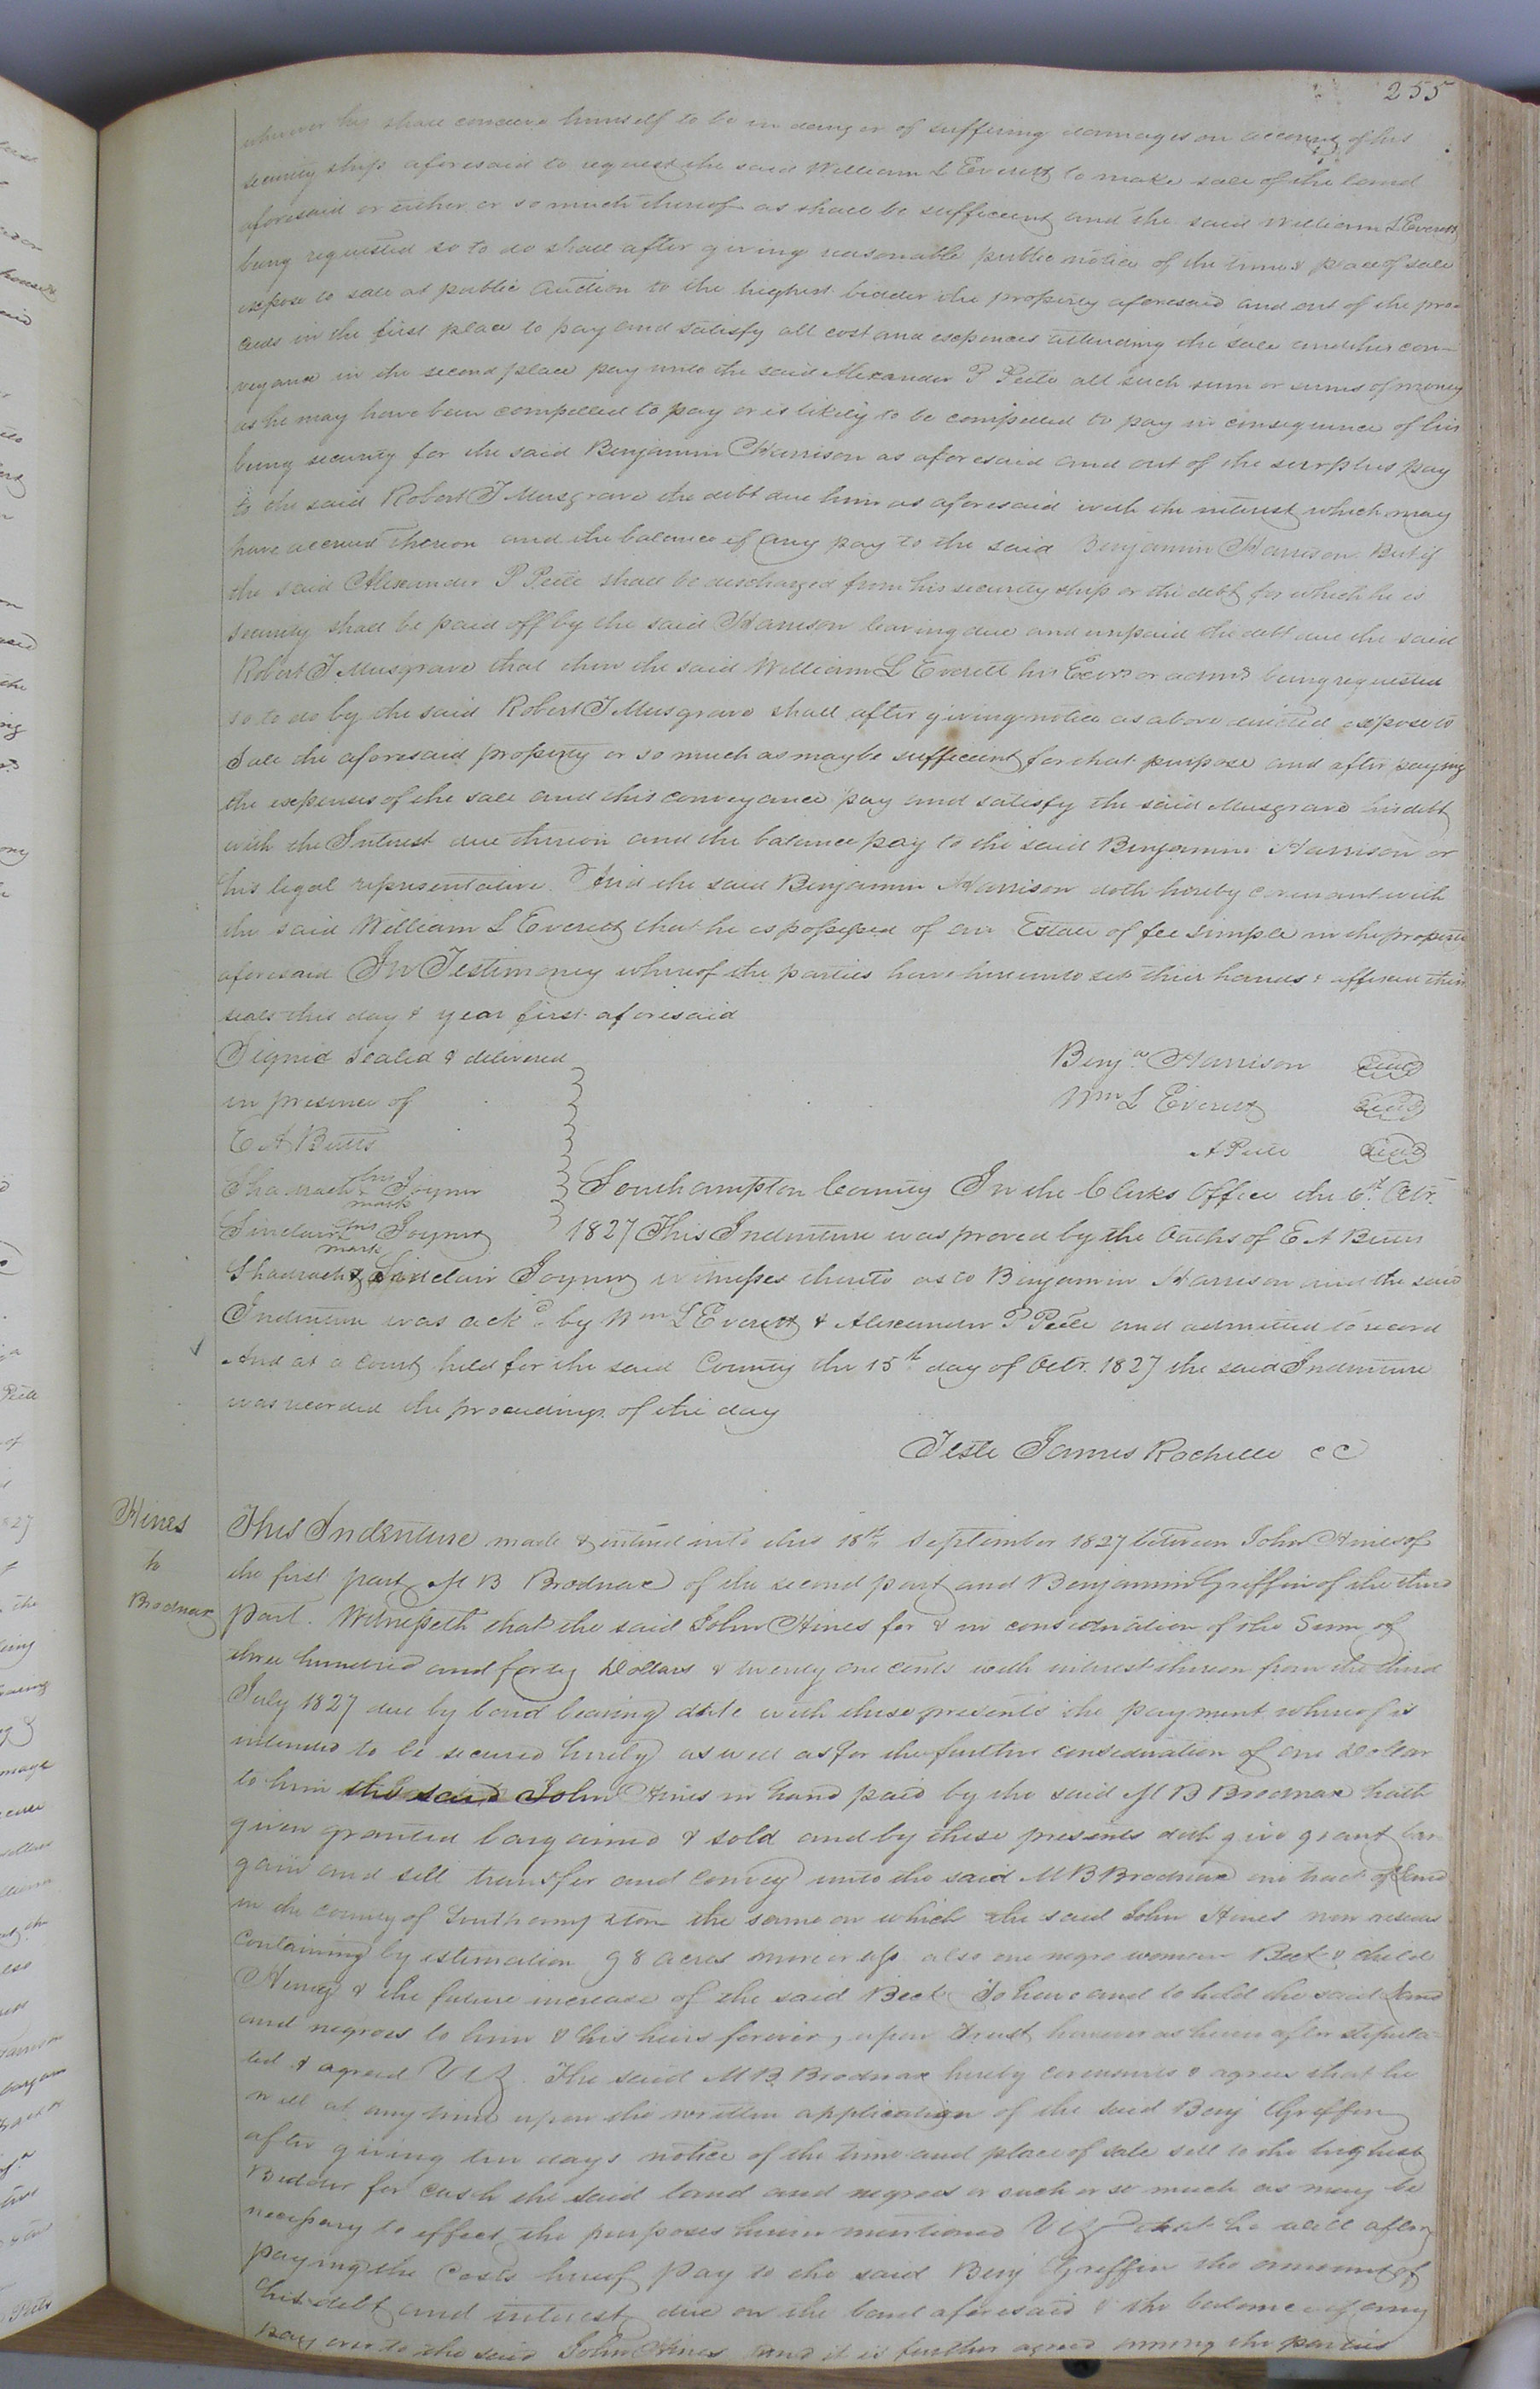 255
whenever he shall conceive himself to be in danger of suffering damages on account of his
security ship aforesaid to request the said William L Everett to make sale of the land
aforesaid or either or so much thereof as shall be sufficient and the said William L Everett
being requested so to do shall after giving reasonable public notice of the time & place of sale
expose to sale at public auction to the highest bidder the property aforesaid and out of the pro-
ceeds in the first place to pay and satisfy all cost and expences attending the sale and this con-
veyance in the second place pay unto the said Alexander P Peete all such sum or sums of money
as he may have been compelled to pay or is likely to be compelled to pay in consequence of his
being security for the said Benjamin Harrison as aforesaid and out of the surplus pay
to the said Robert T Musgrave the debt due him as aforesaid with the interest which may
have accrued thereon and the balance if any pay to the said Benjamin Harrison But if
the said Alexander P Peete shall be discharged from his security ship or the debt for which he is
security shall be paid off by the said Harrison leaving due and unpaid the debt due the said
Robert T Musgrave that then the said William L Everett his Exors or admrs being requested
so to do by the said Robert T Musgrave shall after giving notice as above directed expose to
Sale the aforesaid property or so much as may be sufficient for that purpose and after paying
the expenses of the sale and this conveyance pay and satisfy the said Musgrave his debt
with the Interest due thereon and the balance pay to the said Benjamin Harrison or
his legal representative. And the said Benjamin Harrison doth hereby covenant with
the said William L Everett that he is possessed of an Estate of fee simple in the property
aforesaid In Testimony whereof the parties have hereunto set their hands & affixed their
seals this day & year first aforesaid
Signed Sealed & delivered Benjn Harrison Seal
in presence of Wm L Everett Seal
E A Butts A Peete Seal
Shadrach his mark Joyner Southampton County In the Clerks Office the 6th Octr.
Sinclair his mark Joyner 1827 This Indenture was proved by the Oaths of E A Butts
Shadrach & Sinclair Joyner witnesses thereto as to Benjamin Harrison and the said
Indenture was ackd by Wm L Everett & Alexander P Peete and admitted to record
And at a Court held for the said County the 15th day of Octr. 1827 the said Indenture
was recorded the proceedings of the day
Teste James Rochelle CC
Hines
to
Brodnax
This Indenture made & entered into this 18th September 1827 between John Hines of
the first part M B Brodnax of the second part and Benjamin Griffin of the third
part. Witnesseth that the said John Hines for & in consideration of the Sum of
three hundred and forty Dollars & twenty one cents with interest thereon from the third
July 1827 due by bond bearing date with these presents the payment whereof is
intended to be secured hereby as well as for the further consideration of one Dollar
to him the said John Hines in hand paid by the said M B Brodnax hath
given granted bargained & sold and by these presents doth give grant bar-
gain and sell transfer and convey unto the said M B Brodnax one tract of Land
in the County of Southampton the same on which the said John Hines now resides
Containing by estimation 98 acres more or less also one negro woman Beck & child
Henry & the future increase of the said Beck To have and to hold the said Land
and negroes to him & his heirs forever, upon trust however as herein after stipula-
ted & agreed Viz. The said M B Brodnax hereby covenants & agrees that he
will at any time upon the written application of the said Benj Griffin
after giving ten days notice of the time and place of sale sell to the highest
Bidder for cash the said land and negroes or such or so much as may be
necessary to effect the purposes herein mentioned Viz that he will after
paying the Costs hereof Pay to the said Benj Griffin the amount of
his debt and interest due on the bond aforesaid & the balance if any
pay over to the said John Hines And it is further agreed among the parties